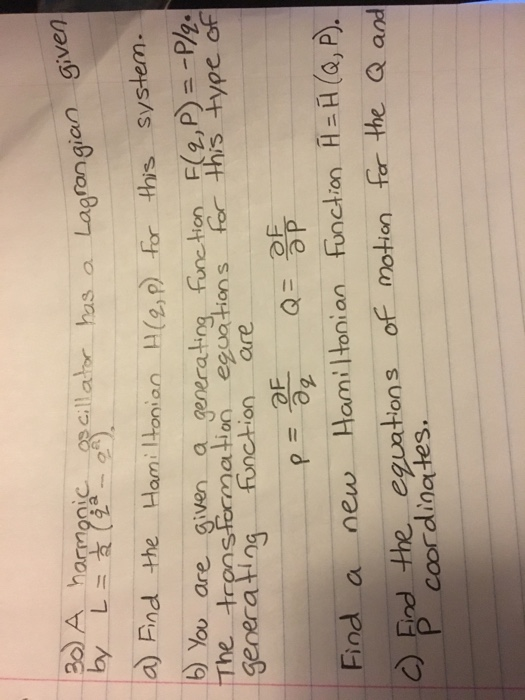 30) A harmonic oscillator has a Lagrangian given
by L = ½ (q̇² - q²).
a) Find the Hamiltonian H(q,p) for this system.
b) You are given a generating function F(q,P) = -P/q.
The transformation equations for this type of
generating function are
p = ∂F/∂q Q = ∂F/∂P
Find a new Hamiltonian function H̄ = H̄(Q,P).
c) Find the equations of motion for the Q and
P coordinates.